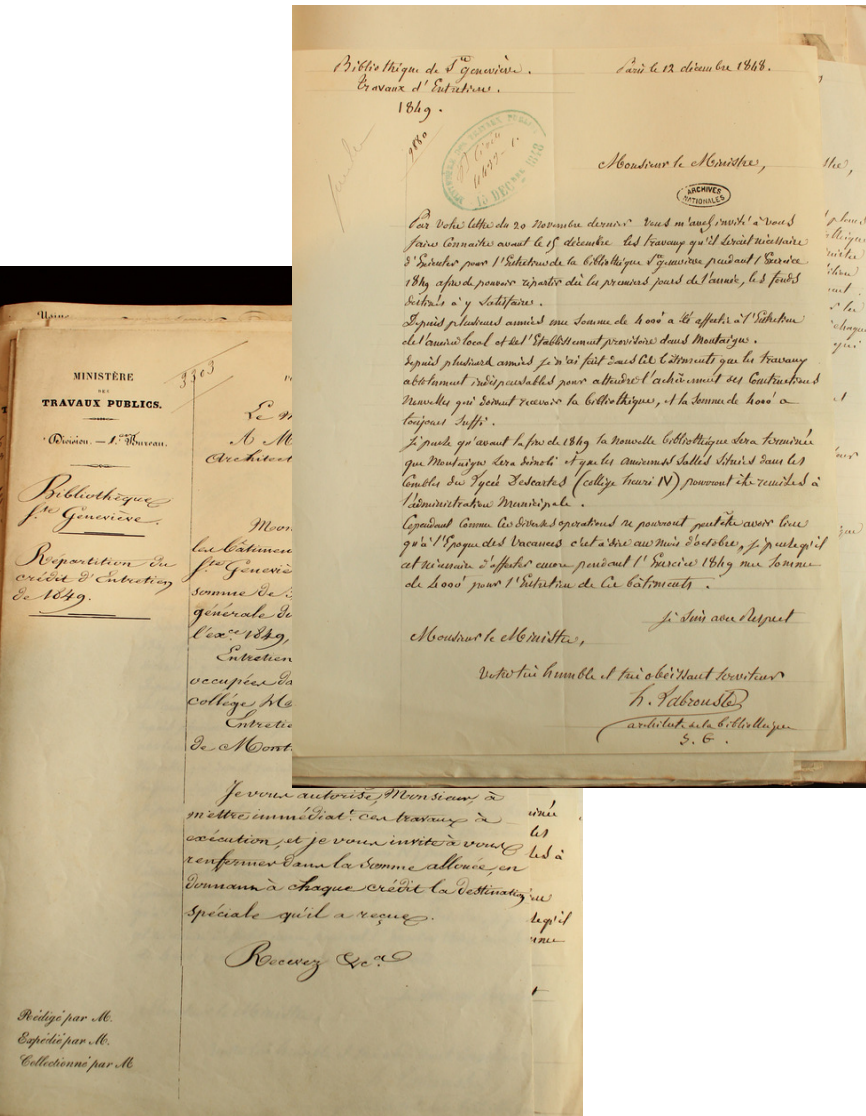 Bibliothèque de Ste geneviève.
Travaux d'Entretien.
1849.
Paris le 12 décembre 1848.
9880
MINISTÈRE DES TRAVAUX PUBLICS
15 DEC 1848
Monsieur le Ministre,
ARCHIVES
NATIONALES
Par votre lettre du 20 Novembre dernier vous m'avez invité à vous
faire connaitre avant le 15 décembre les travaux qu'il serait nécessaire
d'Exécuter pour l'Entretien de la bibliothèque Ste geneviève pendant l'Exercice
1849 afin de pouvoir répartir dès les premiers jours de l'année, les fonds
destinés à y satisfaire.
Depuis plusieurs années une somme de 4000f a été affectée à l'Entretien
de l'ancien local et de l'Etablissement provisoire dans Montaigu.
depuis plusieurs années je n'ai fait dans ces bâtiments que les travaux
absolument indispensables pour attendre l'achèvement des Constructions
Nouvelles qui doivent recevoir la bibliothèque, et la somme de 4000f a
toujours suffi.
Je pense qu'avant la fin de 1849 la nouvelle bibliothèque sera terminée
que Montaigu sera démoli et que les anciennes salles situées dans les
Combles du Lycée Descartes (collège henri IV) pourront être remises à
l'administration Municipale.
Cependant Comme ces diverses opérations ne pourront peut être avoir lieu
qu'à l'Epoque des Vacances c'est à dire au mois d'octobre, je pense qu'il
est nécessaire d'affecter encore pendant l'Exercice 1849 une somme
de 4000f pour l'Entretien de ces bâtiments.
je suis avec Respect
Monsieur le Ministre,
Votre très humble et très obéissant serviteur
h. Labrouste
architecte de la bibliothèque
S. G.
MINISTÈRE
DES
TRAVAUX PUBLICS.
Division. — 1er Bureau.
3303
Bibliothèque
Ste Geneviève.
Répartition du
crédit d'Entretien
de 1849.
Le M
A M
Architect
Mon
les bâtimen
Ste Geneviè
somme de
générale du
l'exce 1849,
Entretien
occupées da
collège He
Entretie
de Mont
Je vous autorise, Monsieur, à
mettre immédiatt ces travaux à
exécution, et je vous invite à vous
renfermer dans la somme allouée, en
donnant à chaque crédit la destination
spéciale qu'il a reçue.
Recevez &ca
Rédigé par M.
Expédié par M.
Collectionné par M